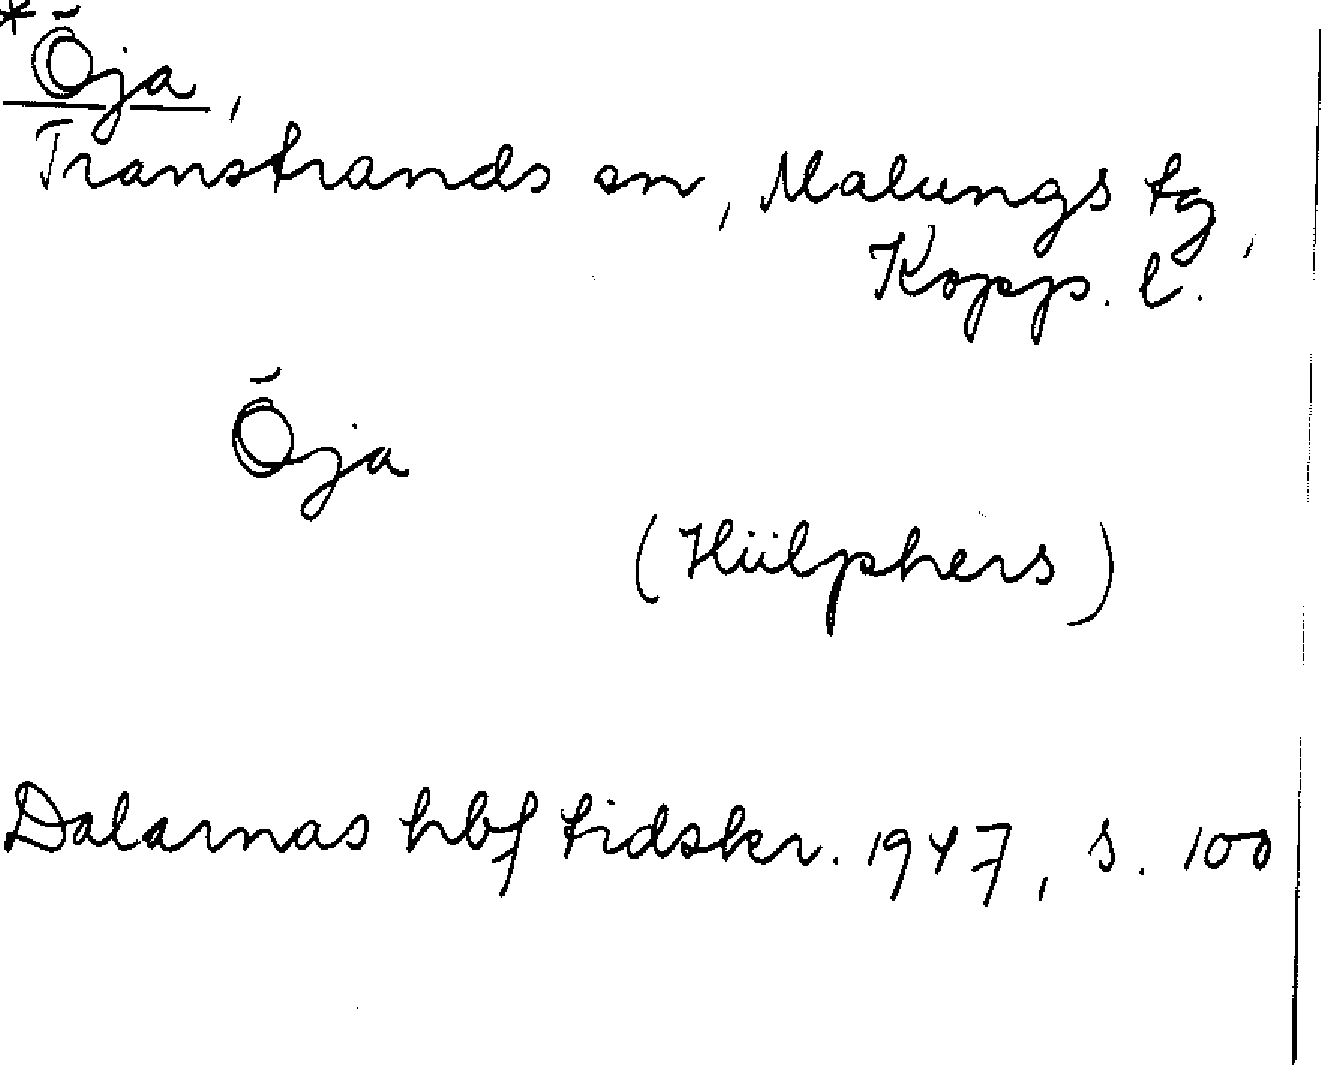 *Öja,
Transtrands sn, Malungs tg,
Kopp. l.
Öja
(Hülphers)
Dalarnas hbf tidskr. 1947, s. 100